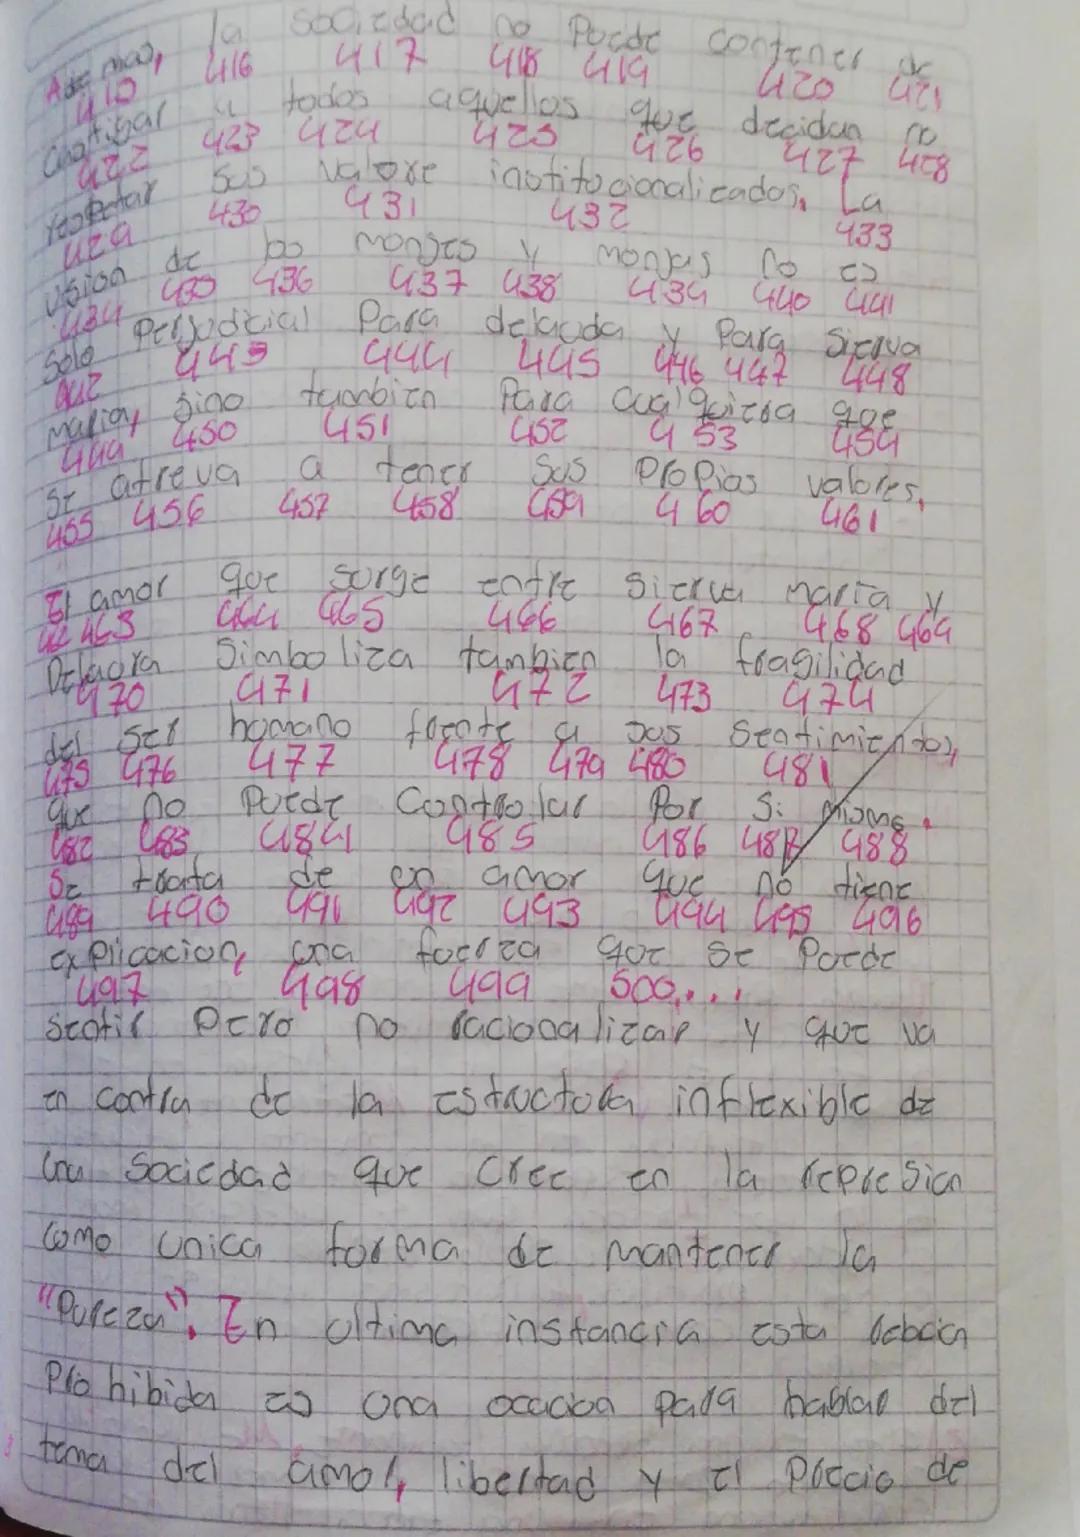 Ademas, la sociedad no Puede contener de
410 416 417 418 419 420 421
Castigar a todos aquellos que decidan no
422 423 424 425 426 427 428
respetar sus valore institucionalizados. La
429 430 431 432 433
vision de los monjes y monjas no es
434 435 436 437 438 439 440 441
solo Perjudicial Para delauda y Para Sierva
442 443 444 445 446 447 448
maria, sino tambien Para cualquiera que
449 450 451 452 453 454
se atreva a tener sus propios valores.
455 456 457 458 459 460 461
El amor que surge entre Sierva maria y
462 463 464 465 466 467 468 469
Delaura Simboliza tambien la fragilidad
470 471 472 473 474
del ser humano frente a sus Sentimientos,
475 476 477 478 479 480 481
que no Puede Controlar Por Si mismo.
482 483 484 485 486 487 488
Se trata de un amor que no tiene
489 490 491 492 493 494 495 496
explicacion, una fuerza que se Puede
497 498 499 500....
sentir Pero no racionalizar y que va
en contra de la estructura inflexible de
una Sociedad que cree en la represion
como unica forma de mantener la
"Pureza". En ultima instancia esta
Prohibida es una para hablar del
tema del amor, libertad y el Precio de